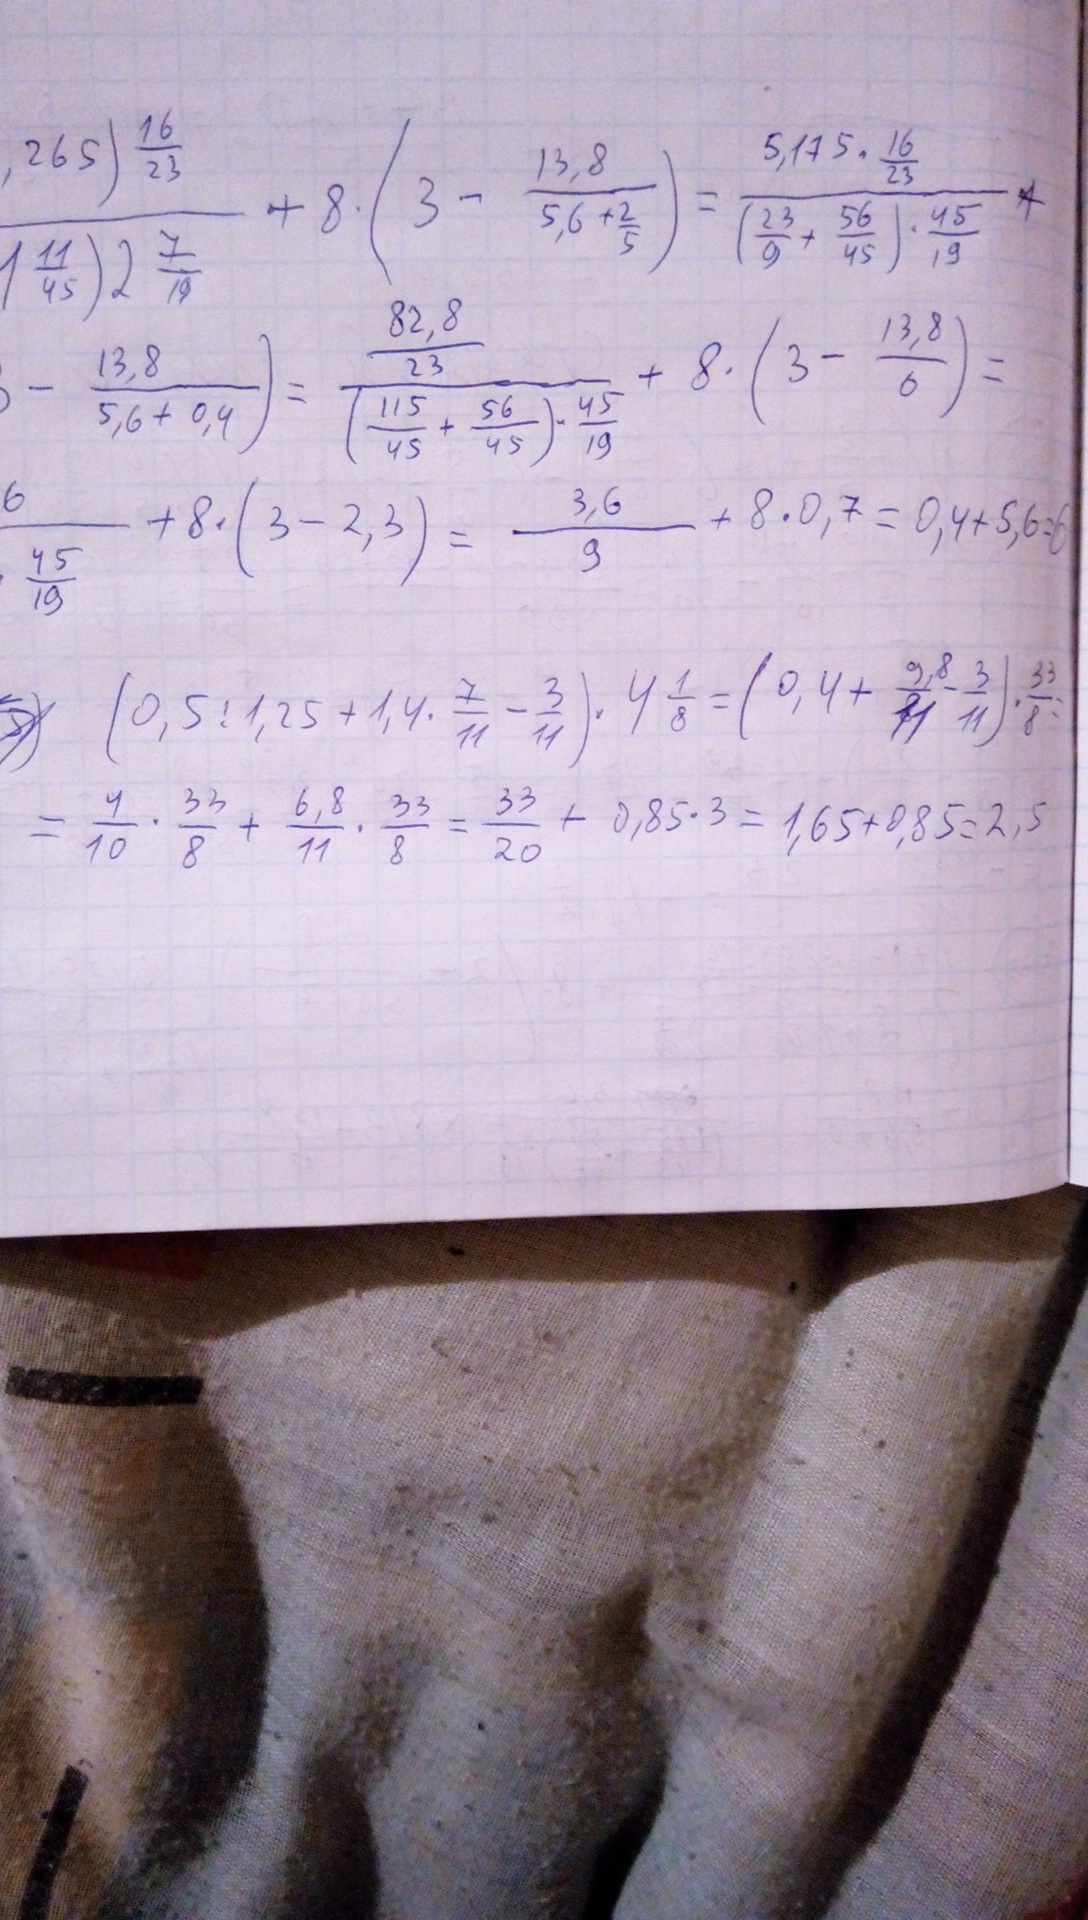 ,265) 16/23 / (1 11/45) 2 7/19 + 8·(3 - 13,8/(5,6 + 2/5)) = 5,175 · 16/23 / ((23/9 + 56/45) · 45/19) +
3 - 13,8/(5,6 + 0,4)) = 82,8/23 / ((115/45 + 56/45) · 45/19) + 8·(3 - 13,8/6) =
6 / · 45/19 + 8·(3 - 2,3) = 3,6/9 + 8·0,7 = 0,4+5,6=6
(0,5:1,25+1,4·7/11 - 3/11)·4 1/8 = (0,4+ 9,8/11 - 3/11)·33/8=
= 4/10 · 33/8 + 6,8/11 · 33/8 = 33/20 + 0,85·3 = 1,65+0,85=2,5